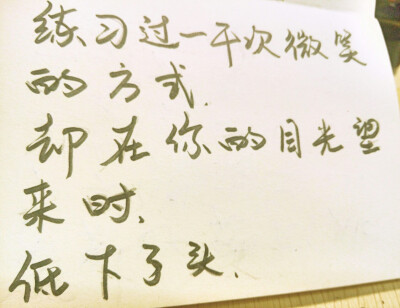 练习过一千次微笑
的方式.
却在你的目光望
来时、
低下了头、